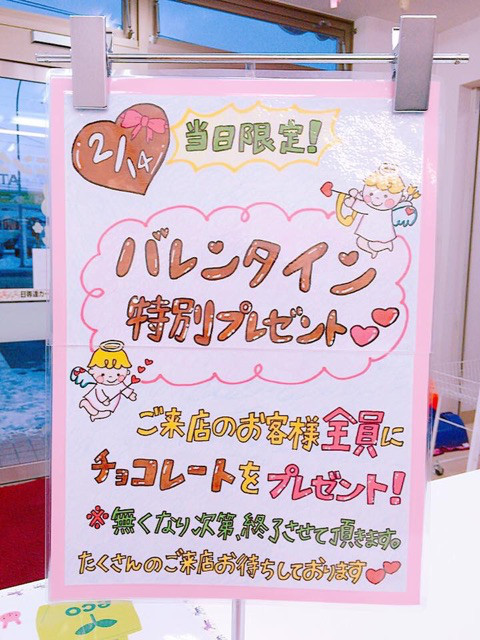 2/14
当日限定!
バレンタイン
特別プレゼント
ご来店のお客様全員に
チョコレートをプレゼント!
※無くなり次第、終了させて頂きます。
たくさんのご来店お待ちしております
eco